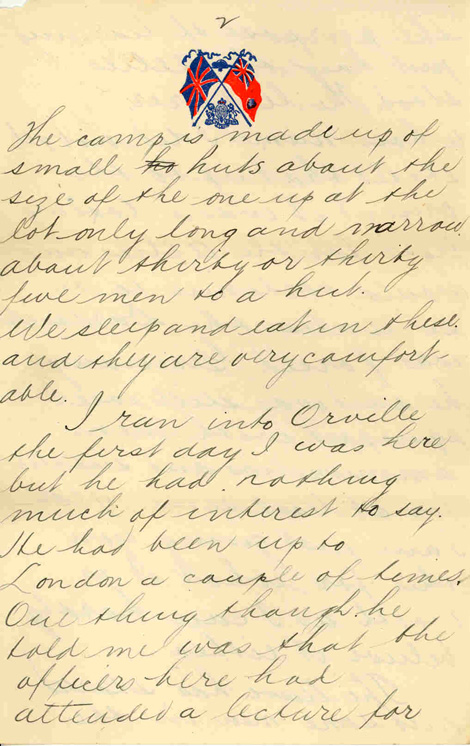 2
The camp is made up of
small ho huts about the
size of the one up at the
lot only long and narrow.
about thirty or thirty
five men to a hut.
We sleep and eat in these.
and they are very comfort-
able.
I ran into Orville
the first day I was here
but he had nothing
much of interest to say.
He had been up to
London a couple of times.
One thing though he
told me was that the
officers here had
attended a lecture for